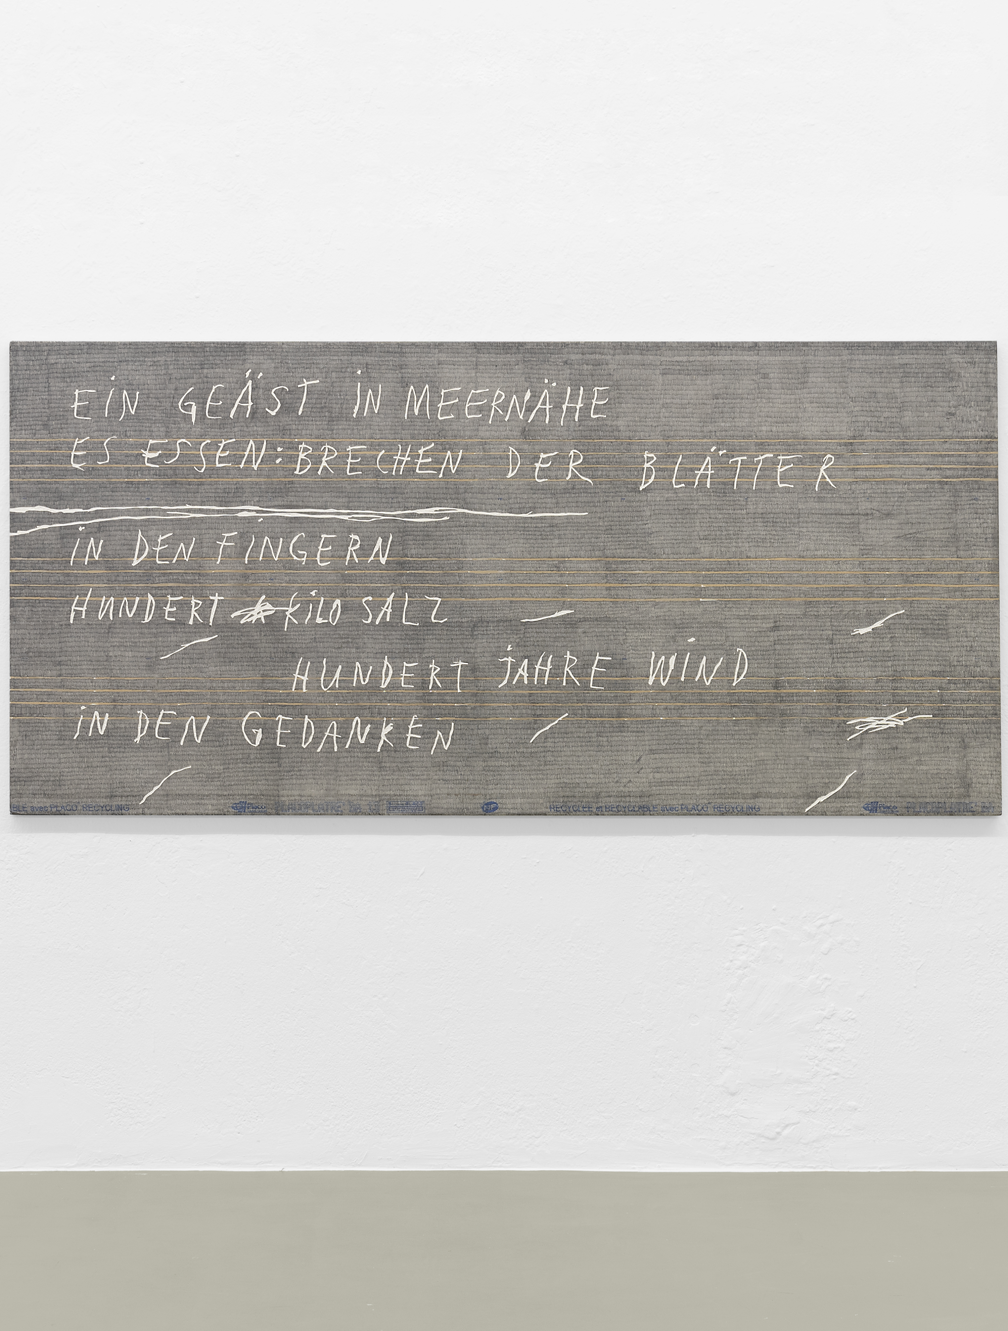 EIN GEÄST IN MEERNÄHE
ES ESSEN: BRECHEN DER BLÄTTER
IN DEN FINGERN
HUNDERT KILO SALZ
HUNDERT JAHRE WIND
IN DEN GEDANKEN
PLACO RECYCLING Placo RECYCLÉE et RECYCLABLE avec PLACO RECYCLING Placo